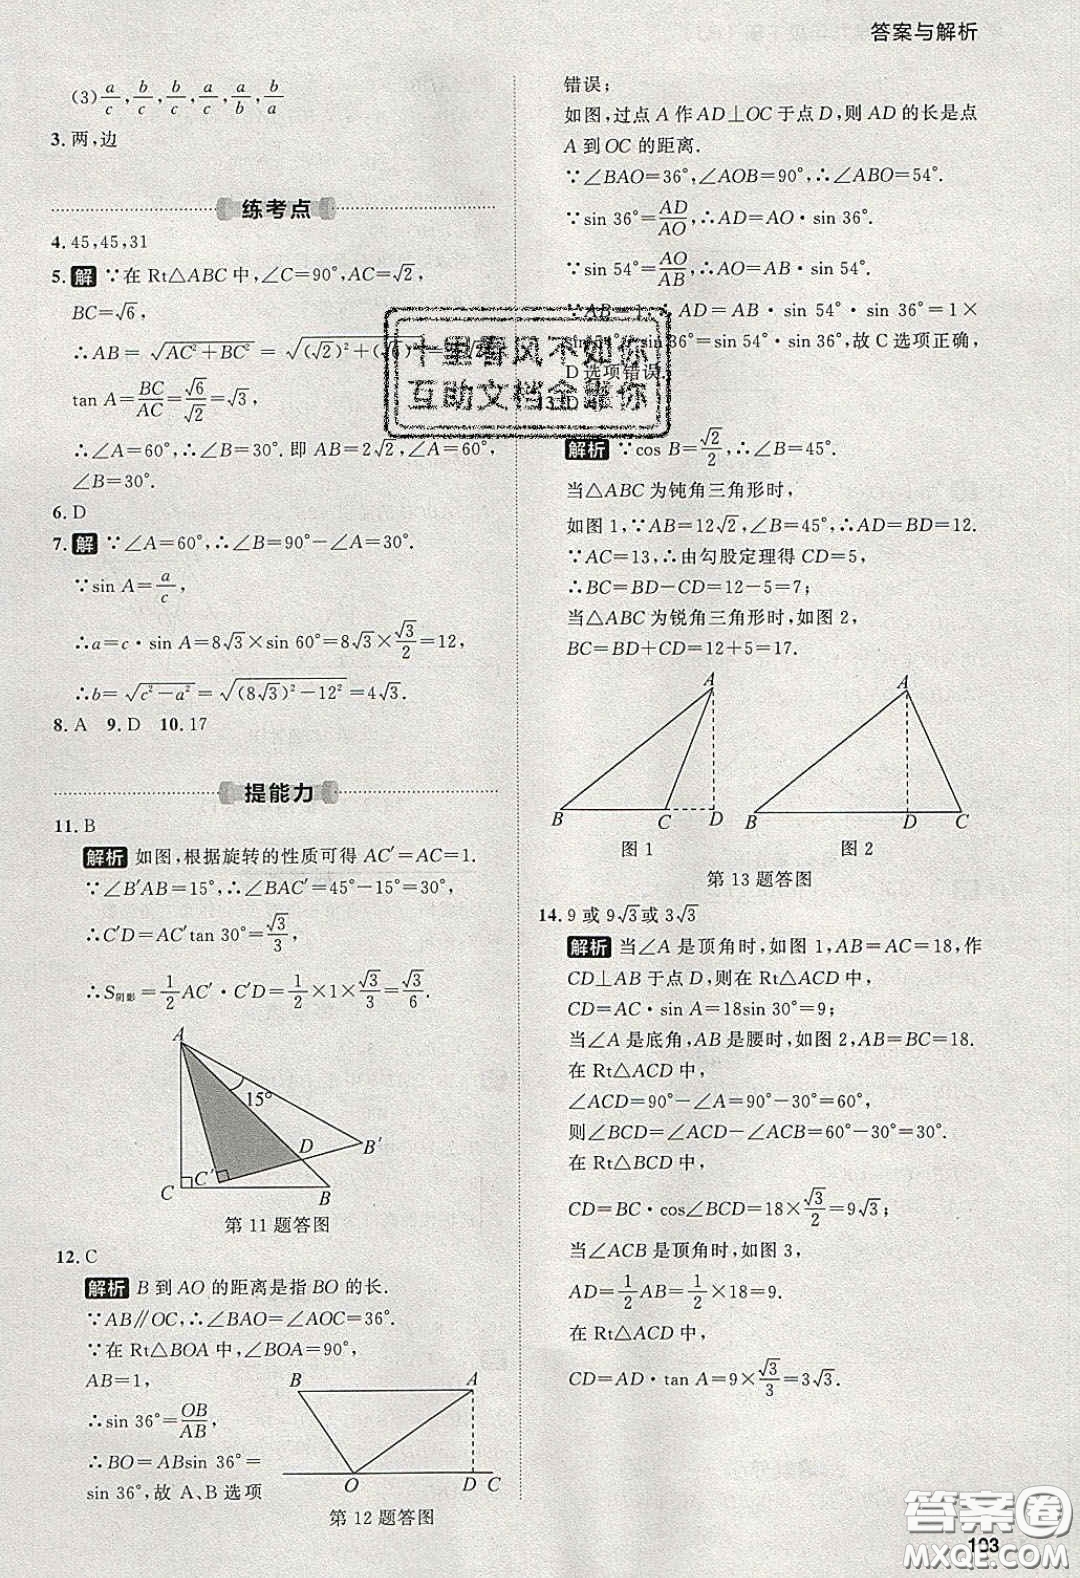 答案与解析
(3) a/c, b/c, b/c, a/c, a/b, b/a
3. 两,边
练考点
4. 45,45,31
5. 解 ∵在 Rt△ABC 中,∠C=90°,AC=√2,
BC=√6,
∴AB= √(AC²+BC²) = √((√2)²+(√6)²)=
tan A=BC/AC=√6/√2=√3,
∴∠A=60°,∴∠B=30°. 即 AB=2√2,∠A=60°,
∠B=30°.
6. D
7. 解 ∵∠A=60°,∴∠B=90°-∠A=30°.
∵sin A=a/c,
∴a=c·sin A=8√3×sin 60°=8√3×√3/2=12,
∴b=√(c²-a²)=√((8√3)²-12²)=4√3.
8. A 9. D 10. 17
提能力
11. B
解析 如图,根据旋转的性质可得 AC′=AC=1.
∵∠B′AB=15°,∴∠BAC′=45°-15°=30°,
∴C′D=AC′tan 30°=√3/3,
∴S阴影=1/2AC′·C′D=1/2×1×√3/3=√3/6.
A
15°
D
B′
C′
C
B
第11题答图
12. C
解析 B 到 AO 的距离是指 BO 的长.
∵AB∥OC,∴∠BAO=∠AOC=36°.
∵在 Rt△BOA 中,∠BOA=90°,
AB=1,
∴sin 36°=OB/AB,
∴BO=ABsin 36°=
sin 36°,故 A、B 选项
B
A
O
D
C
第12题答图
错误;
如图,过点 A 作 AD⊥OC 于点 D,则 AD 的长是点
A 到 OC 的距离.
∵∠BAO=36°,∠AOB=90°,∴∠ABO=54°.
∵sin 36°=AD/AO,∴AD=AO·sin 36°.
∵sin 54°=AO/AB,∴AO=AB·sin 54°.
∵AB=1,∴AD=AB·sin 54°·sin 36°=1×
sin 54°·sin 36°=sin 54°·sin 36°,故 C 选项正确,
D 选项错误.
13. D
十里春风不如你
互助文档全靠你
解析 ∵cos B=√2/2,∴∠B=45°.
当△ABC 为钝角三角形时,
如图 1,∵AB=12√2,∠B=45°,∴AD=BD=12.
∵AC=13,∴由勾股定理得 CD=5,
∴BC=BD-CD=12-5=7;
当△ABC 为锐角三角形时,如图 2,
BC=BD+CD=12+5=17.
A
B
C
D
图 1
A
B
D
C
图 2
第13题答图
14. 9 或 9√3或 3√3
解析 当∠A 是顶角时,如图 1,AB=AC=18,作
CD⊥AB 于点 D,则在 Rt△ACD 中,
CD=AC·sin A=18sin 30°=9;
当∠A 是底角,AB 是腰时,如图 2,AB=BC=18.
在 Rt△ACD 中,
∠ACD=90°-∠A=90°-30°=60°,
则∠BCD=∠ACD-∠ACB=60°-30°=30°.
在 Rt△BCD 中,
CD=BC·cos∠BCD=18×√3/2=9√3;
当∠ACB 是顶角时,如图 3,
AD=1/2AB=1/2×18=9.
在 Rt△ACD 中,
CD=AD·tan A=9×√3/3=3√3.
答案圈
MXQE.COM
103